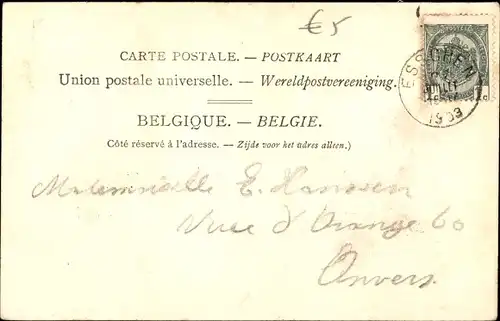 €5
CARTE POSTALE. — POSTKAART
Union postale universelle. — Wereldpostvereeniging.
BELGIQUE. — BELGIE.
Côté réservé à l'adresse. — Zijde voor het adres alleen.)
ESSCHEN
JUIL
1903
Mademoiselle E. Hanssen
d'Orange 60
Anvers